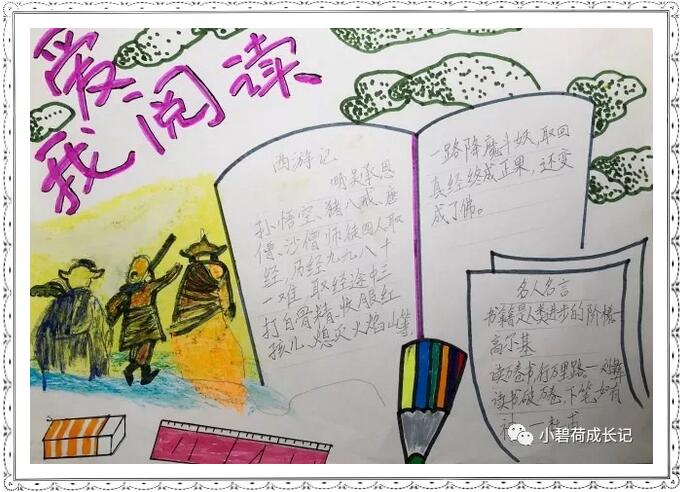 我爱阅读
西游记
明吴承恩
孙悟空、猪八戒、唐
僧、沙僧师徒四人取
经,历经九九八十
一难,取经途中三
打白骨精、收服红
孩儿、熄灭火焰山等,
一路降魔斗妖,取回
真经终成正果,还变
成了佛。
名人名言
书籍是人类进步的阶梯—
高尔基
读万卷书,行万里路—刘彝
读书破万卷,下笔如有
小碧荷成长记